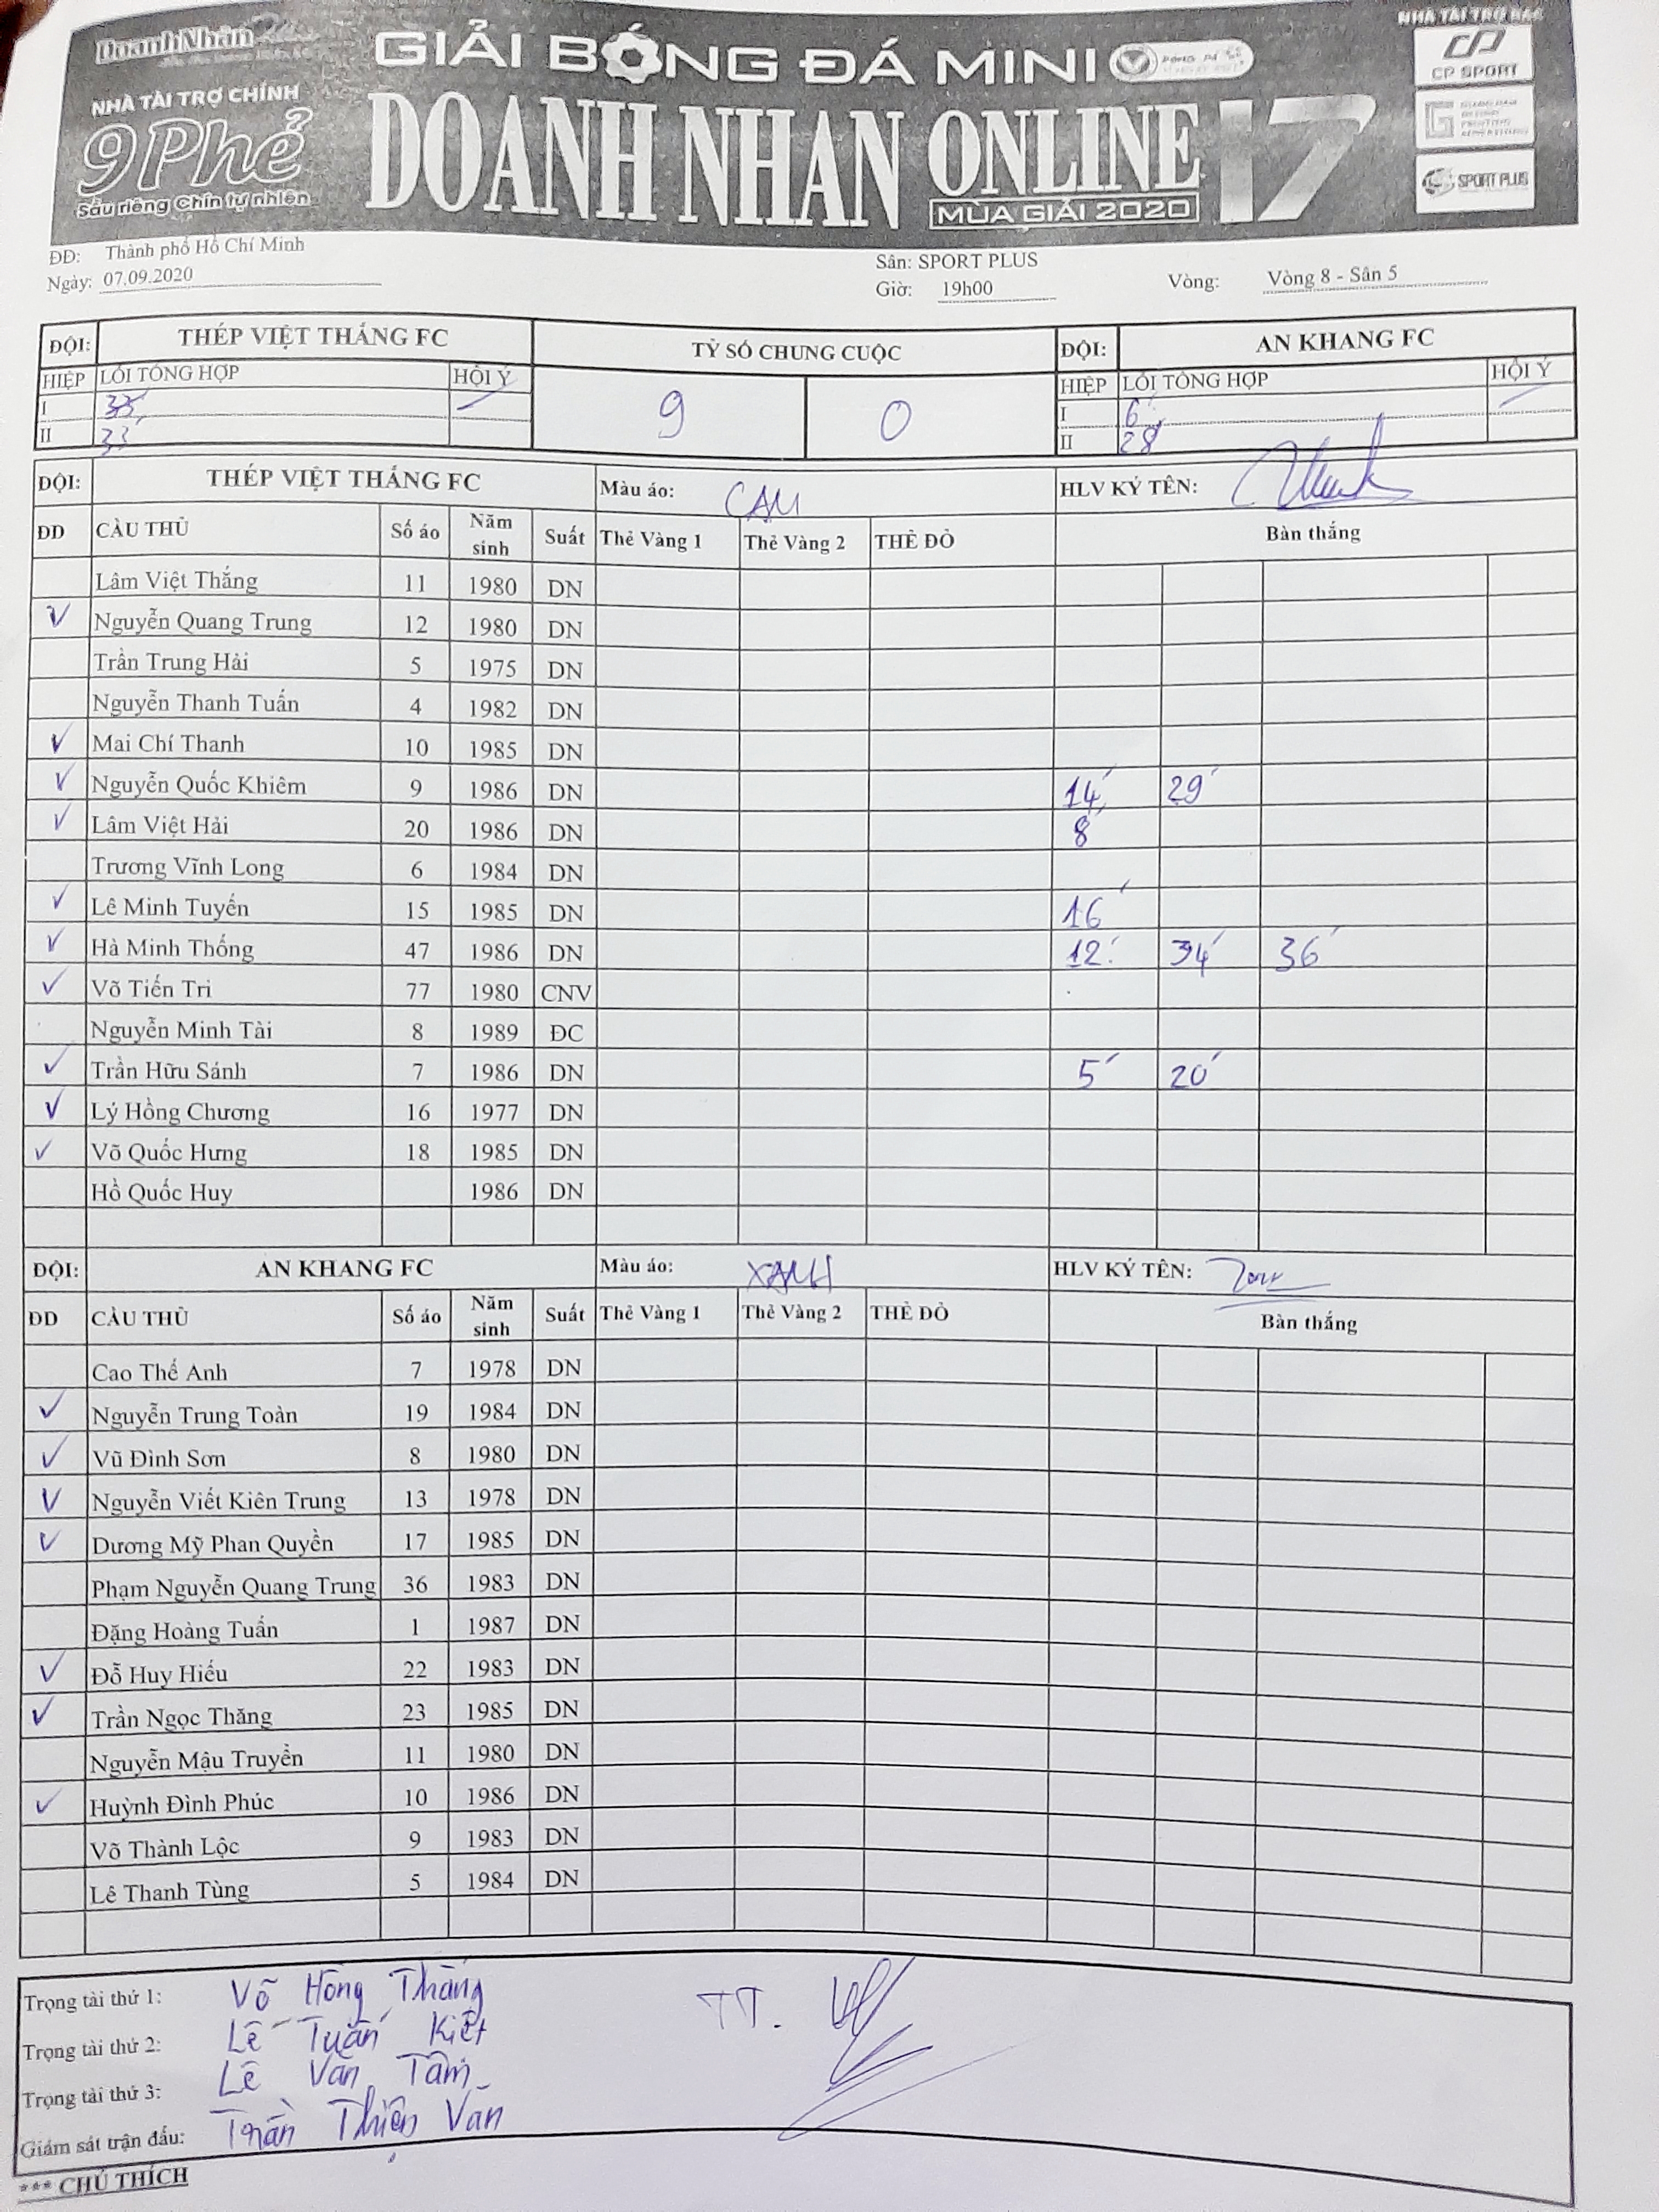 DoanhNhân
GIẢI BÓNG ĐÁ MINI
NHÀ TÀI TRỢ BẠC
CP SPORT
NHÀ TÀI TRỢ CHÍNH
9Phẻ
Sầu riêng Chín tự nhiên
DOANH NHAN ONLINE 17
MÙA GIẢI 2020
SPORT PLUS
ĐĐ: Thành phố Hồ Chí Minh
Ngày: 07.09.2020
Sân: SPORT PLUS
Giờ: 19h00
Vòng: Vòng 8 - Sân 5
ĐỘI: THÉP VIỆT THẮNG FC TỶ SỐ CHUNG CUỘC ĐỘI: AN KHANG FC
HIỆP LỖI TỔNG HỢP HỘI Ý 9 0 HIỆP LỖI TỔNG HỢP HỘI Ý
I I 6'
II 33' II 28'
ĐỘI: THÉP VIỆT THẮNG FC Màu áo: CAM HLV KÝ TÊN:
ĐD CẦU THỦ Số áo Năm sinh Suất Thẻ Vàng 1 Thẻ Vàng 2 THẺ ĐỎ Bàn thắng
Lâm Việt Thắng 11 1980 DN
V Nguyễn Quang Trung 12 1980 DN
Trần Trung Hải 5 1975 DN
Nguyễn Thanh Tuấn 4 1982 DN
V Mai Chí Thanh 10 1985 DN
V Nguyễn Quốc Khiêm 9 1986 DN 14' 29'
V Lâm Việt Hải 20 1986 DN 8'
Trương Vĩnh Long 6 1984 DN
V Lê Minh Tuyến 15 1985 DN 16'
V Hà Minh Thống 47 1986 DN 12' 34' 36'
V Võ Tiến Tri 77 1980 CNV
Nguyễn Minh Tài 8 1989 ĐC
V Trần Hữu Sánh 7 1986 DN 5' 20'
V Lý Hồng Chương 16 1977 DN
V Võ Quốc Hưng 18 1985 DN
Hồ Quốc Huy 1986 DN
ĐỘI: AN KHANG FC Màu áo: XANH HLV KÝ TÊN:
ĐD CẦU THỦ Số áo Năm sinh Suất Thẻ Vàng 1 Thẻ Vàng 2 THẺ ĐỎ Bàn thắng
Cao Thế Anh 7 1978 DN
V Nguyễn Trung Toàn 19 1984 DN
V Vũ Đình Sơn 8 1980 DN
V Nguyễn Viết Kiên Trung 13 1978 DN
V Dương Mỹ Phan Quyền 17 1985 DN
Phạm Nguyễn Quang Trung 36 1983 DN
Đặng Hoàng Tuấn 1 1987 DN
V Đỗ Huy Hiếu 22 1983 DN
V Trần Ngọc Thăng 23 1985 DN
Nguyễn Mậu Truyền 11 1980 DN
V Huỳnh Đình Phúc 10 1986 DN
Võ Thành Lộc 9 1983 DN
Lê Thanh Tùng 5 1984 DN
Trọng tài thứ 1: Võ Hồng Thắng TT.
Trọng tài thứ 2: Lê Tuấn Kiệt
Trọng tài thứ 3: Lê Văn Tâm
Giám sát trận đấu: Trần Thiện Văn
*** CHÚ THÍCH